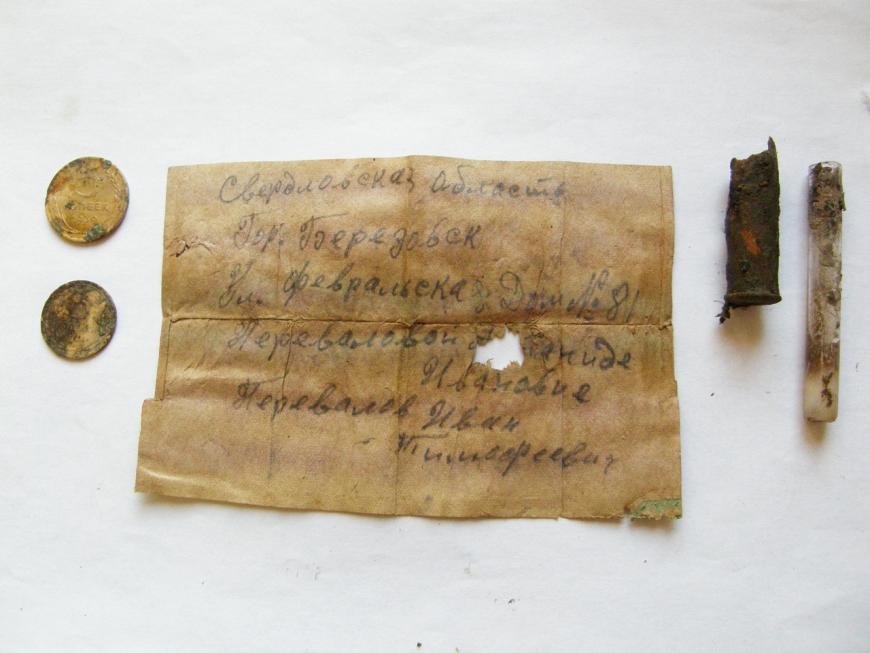 Свердловская область
Гор. Березовск
Ул. Февральская Дом № 81
Переваловой
Ивановне
Перевалов Иван
Тимофеевич